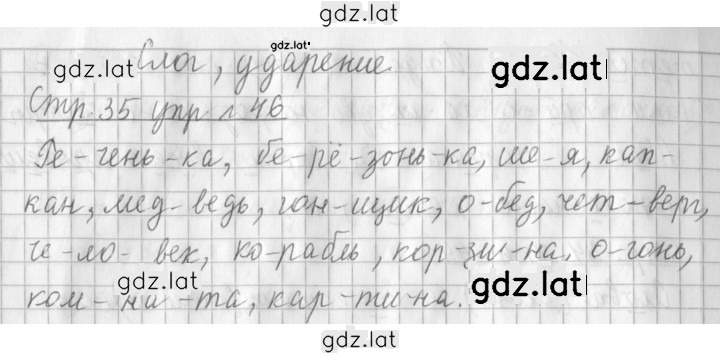 gdz.lat
gdz.lat
Слог, ударение
gdz.lat
gdz.lat
Стр. 35 упр. 46
Ре-чень-ка, бе-рё-зонь-ка, ше-я, кап-
кан, мед-ведь, гон-щик, о-бед, чет-верг,
че-ло-век, ко-рабль, кор-зи-на, о-гонь,
gdz.lat
gdz.lat
ком-на-та, кар-ти-на.
gdz.lat